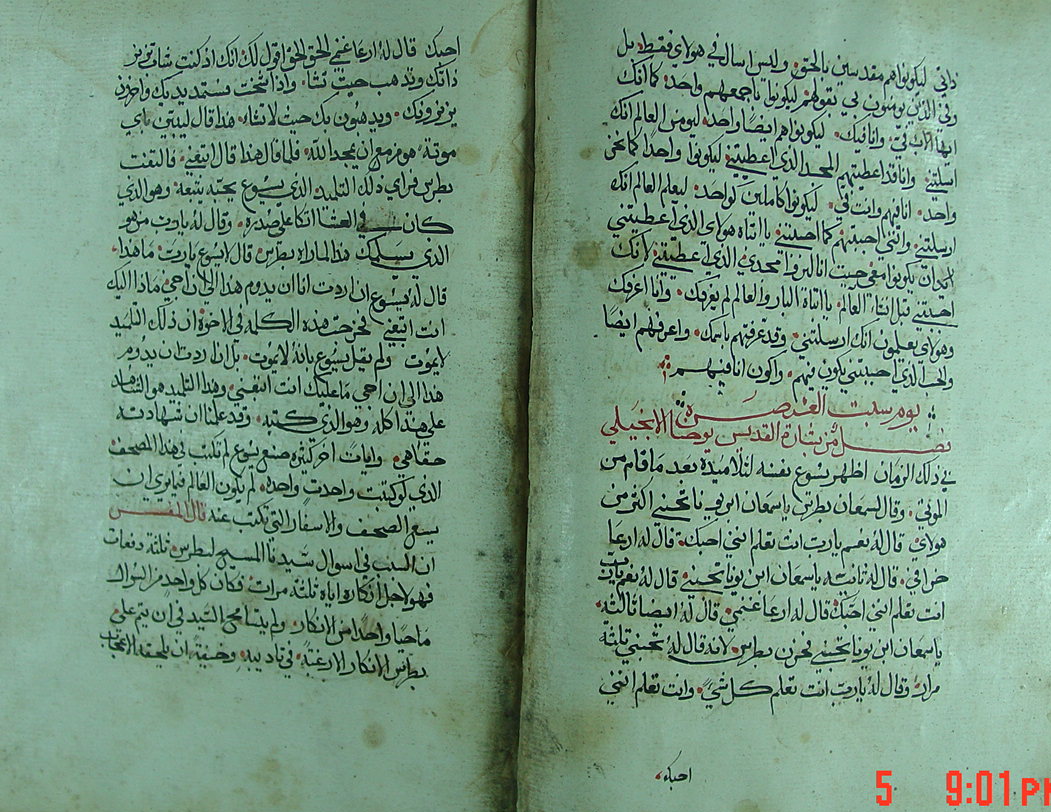 ذاتي ليكونوا هم مقدسين بالحق وليس اسال في هولاي فقط بل
وفي الذين يومنون بي بقولهم ليكونوا باجمعهم واحد كما انك
ايها الاب فيّ وانا فيك ليكونوا هم ايضا واحد ليومن العالم انك
ارسلتني وانا قد اعطيتهم المجد الذي اعطيتني ليكونوا واحدا كما نحن
واحد انا فيهم وانت فيّ ليكونوا كاملين كواحد ليعلم العالم انك
ارسلتني وانني احببتهم كما احببتني يا ابتاه هولاي الذي اعطيتني
اريد ان يكونوا معي حيث انا ليروا مجدي الذي اعطيتني لانك
احببتني قبل انشاء العالم يا ابتاه البار والعالم لم يعرفك وانا اعرفك
وهولاي يعلمون انك ارسلتني وقد عرفتهم باسمك واعرفهم ايضا
والحب الذي احببتني يكون فيهم واكون انا فيهم
يوم سبت العنصرة
فصل من بشارة القديس يوحنا الانجيلي
في ذلك الزمان اظهر يسوع نفسه لتلاميذه بعد ما قام من
الموتي وقال لسمعان بطرس ياسمعان ابن يونا تحبني اكثر من
هولاي قال له نعم يارب انت تعلم انني احبك قال له ارعا
خرافي قال له ثانية ياسمعان ابن يونا تحبني قال له نعم يارب
انت تعلم انني احبك قال له ارعا غنمي قال له ايضا ثالثه
ياسمعان ابن يونا تحبني فحزن بطرس لانه قال له تحبني ثلثة
مرار وقال له يارب انت تعلم كل شي وانت تعلم انني
احبك
احبك قال له ارعا غنمي الحق الحق اقول لك انك اذ كنت شاب تزنر
ذاتك وتذهب حيث تشا واذا شخت فستمد يديك واخرون
يزنرونك ويذهبون بك حيث لا تشاء هذا قال ليبين باي
موتة هو مزمع ان يمجد الله فلما قال هذا قال اتبعني فالتفت
بطرس فراي ذلك التلميذ الذي يسوع يحبه يتبعه وهو الذي
كان في العشا اتكا علي صدره وقال له يارب من هو
الذي يسلمك هذا لما راه بطرس قال ليسوع يارب ما هذا
قال له يسوع ان اردت انا ان يدوم هذا الي ان اجي ماذا اليك
انت اتبعني فخرجت هذه الكلمه في الاخوة ان ذلك التلميذ
لا يموت ولم يقل يسوع بانه لا يموت بل ان اردت ان يدوم
هذا الي ان اجي ما عليك انت اتبعني وهذا التلميذ هو الشاهد
علي هذا كله وهو الذي كتبه وقد علمنا ان شهادته
حقا هي وايات اخر كثيره صنع يسوع لم تكتب في هذا المصحف
الذي لو كتبت واحدت واحده لم تكون العالم فيما يري ان
يسع الصحف والاسفار التي تكتب عنه قال المفسر
ان السبب في اسوال سيدنا المسيح لبطرس ثلثة دفعات
فهو لاجل انكاره اياه ثلثة مرات فكان كل واحد من السوال
ماحيا واحدا من الانكار ولم يشا محي السيد في ان يتم علي
بطرس الانكار الا رغبة في تاديبه وخيفة ان يلحقه الاعجاب
5 9:01